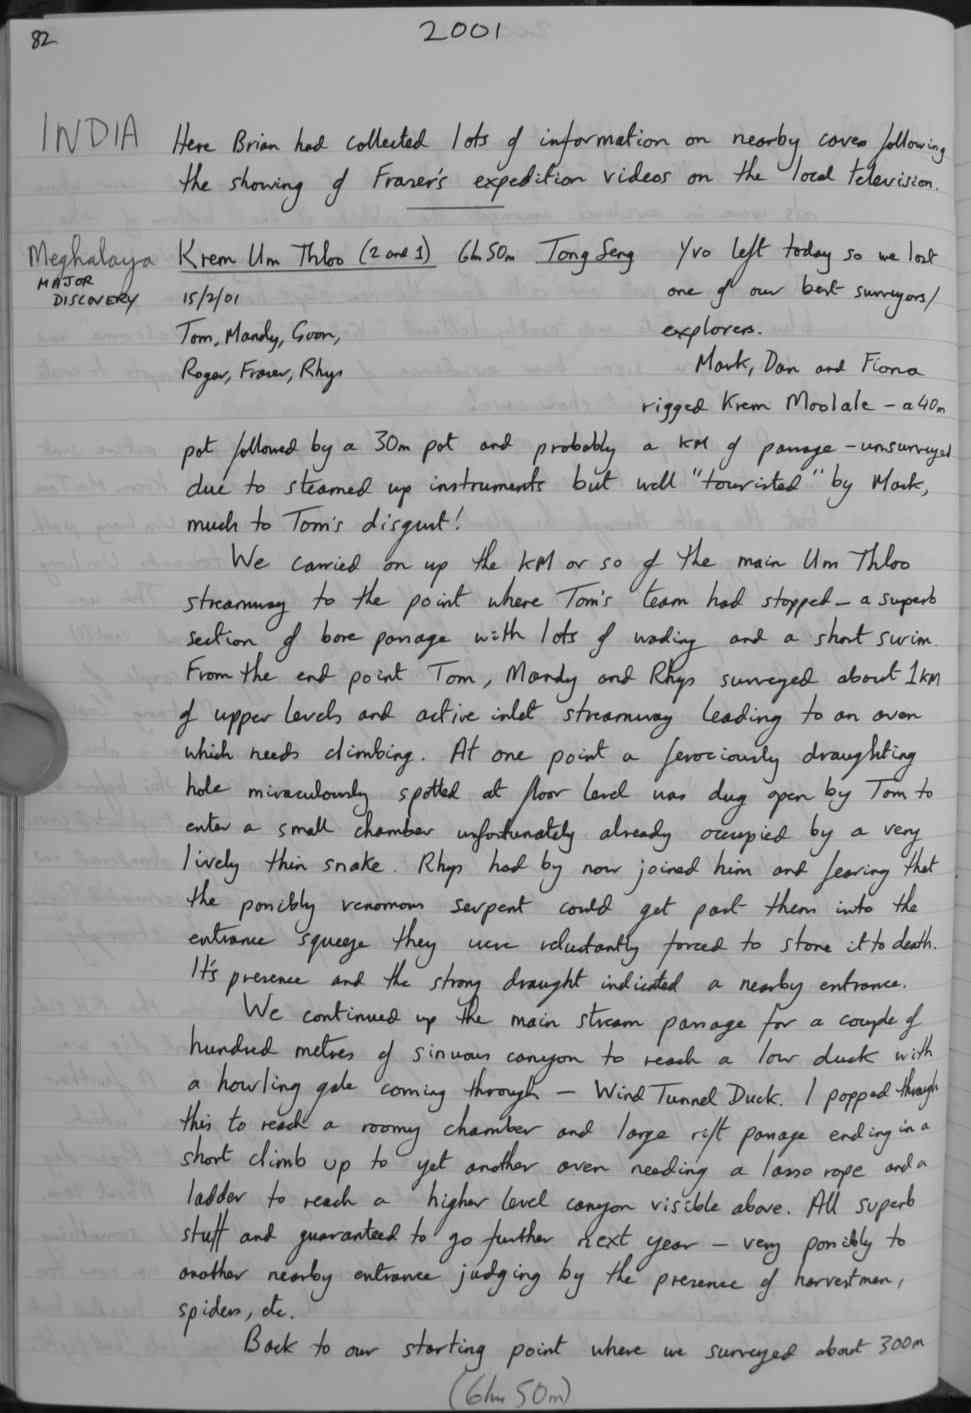 82
2001
INDIA
Here Brian had collected lots of information on nearby caves following
the showing of Fraser's expedition videos on the local television.
Meghalaya
MAJOR
DISCOVERY
Krem Um Thloo (2 and 1) 6h 50m Tong Seng
15/2/01
Tom, Mandy, Goon,
Roger, Fraser, Rhys
Yvo left today so we lost
one of our best surveyors/
explorers.
Mark, Dan and Fiona
rigged Krem Moolale - a 40m
pot followed by a 30m pot and probably a KM of passage - unsurveyed
due to steamed up instruments but well "touristed" by Mark,
much to Tom's disgust!
We carried on up the KM or so of the main Um Thloo
streamway to the point where Tom's team had stopped - a superb
section of bore passage with lots of wading and a short swim.
From the end point Tom, Mandy and Rhys surveyed about 1KM
of upper levels and active inlet streamway leading to an aven
which needs climbing. At one point a ferociously draughting
hole miraculously spotted at floor level was dug open by Tom to
enter a small chamber unfortunately already occupied by a very
lively thin snake. Rhys had by now joined him and fearing that
the possibly venomous serpent could get past them into the
entrance squeeze they were reluctantly forced to stone it to death.
It's presence and the strong draught indicated a nearby entrance.
We continued up the main stream passage for a couple of
hundred metres of sinuous canyon to reach a low duck with
a howling gale coming through - Wind Tunnel Duck. I popped through
this to reach a roomy chamber and large rift passage ending in a
short climb up to yet another aven needing a lasso rope and a
ladder to reach a higher level canyon visible above. All superb
stuff and guaranteed to go further next year - very possibly to
another nearby entrance judging by the presence of harvestmen,
spiders, etc.
Back to our starting point where we surveyed about 300m
(6hr 50m)